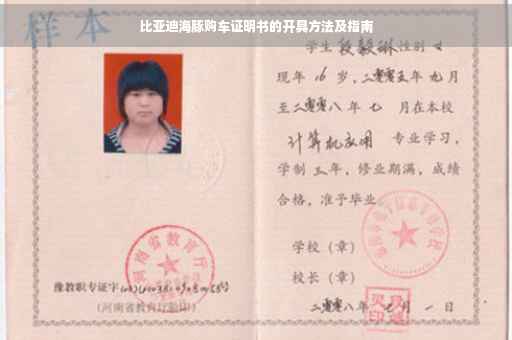 比亚迪海豚购车证明书的开具方法及指南
样本
学生段毅琳性别女
现年16岁，二零零五年九月
至二零零八年七月在本校
计算机应用 专业学习，
学制三年，修业期满，成绩
合格，准予毕业
学校（章）
校长（章）
二零零八年七月一日
河南省教育厅
豫教职专证字
（河南省教育厅验印）